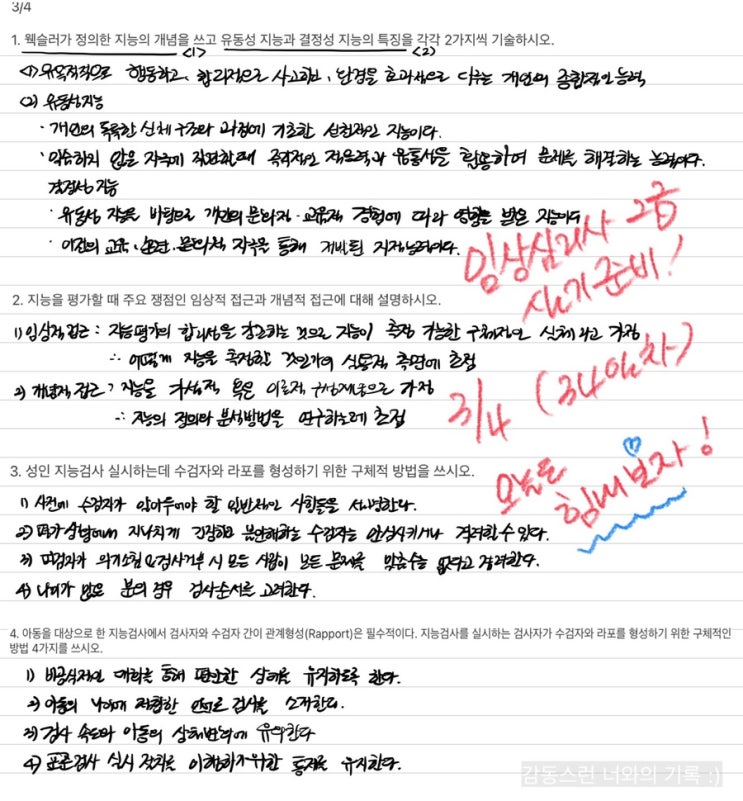 3/4
1. 웩슬러가 정의한 지능의 개념을 쓰고 유동성 지능과 결정성 지능의 특징을 각각 2가지씩 기술하시오.
<1> <2>
<1) 유목적적으로 행동하고, 합리적으로 사고하고, 환경을 효과적으로 다루는 개인의 종합적인 능력
<2) 유동성지능
· 개인의 독특한 신체 구조와 과정에 기초한 선천적인 지능이다.
· 익숙하지 않은 자극에 직면할 때 즉각적인 적응력과 융통성을 활용하여 문제를 해결하는 능력이다.
결정성 지능
· 유동성 지능을 바탕으로 개인의 문화적·교육적 경험에 따라 영향을 받은 지능이다
· 이전의 교육, 훈련, 문화적 자극을 통해 개발된 지적능력이다.
임상심리사 2급
실기준비!
2. 지능을 평가할 때 주요 쟁점인 임상적 접근과 개념적 접근에 대해 설명하시오.
1) 임상적 접근 : 지능평가의 합리성을 강조하는 것으로 지능이 측정 가능한 구체적인 실체라고 가정
∴ 어떻게 지능을 측정할 것인가의 실용적 측면에 초점
2) 개념적 접근 : 지능을 가상적 혹은 이론적 구성개념으로 가정
∴ 지능의 정의와 분석방법을 연구하는데 초점
3/4 (34일차)
오늘도
힘내보자!
3. 성인 지능검사 실시하는데 수검자와 라포를 형성하기 위한 구체적 방법을 쓰시오.
1) 사전에 수검자가 알아두어야 할 일반적인 사항들을 설명한다.
2) 평가상황에서 지나치게 긴장하고 불안해하는 수검자는 안심시키거나 격려할 수 있다.
3) 피검자가 의기소침 or 검사거부 시 모든 사람이 모든 문제를 맞출수는 없다고 격려한다.
4) 나이가 많은 분의 경우 검사순서를 고려한다.
4. 아동을 대상으로 한 지능검사에서 검사자와 수검자 간이 관계형성(Rapport)은 필수적이다. 지능검사를 실시하는 검사자가 수검자와 라포를 형성하기 위한 구체적인
방법 4가지를 쓰시오.
1) 비공식적인 대화를 통해 편안한 상태를 유지하도록 한다.
2) 아동의 나이에 적합한 언어로 검사를 소개한다.
3) 검사 속도와 아동의 상태변화에 유의한다
4) 표준검사 실시 절차를 이행하기위한 통제를 유지한다.
감동스런 너와의 기록 :)